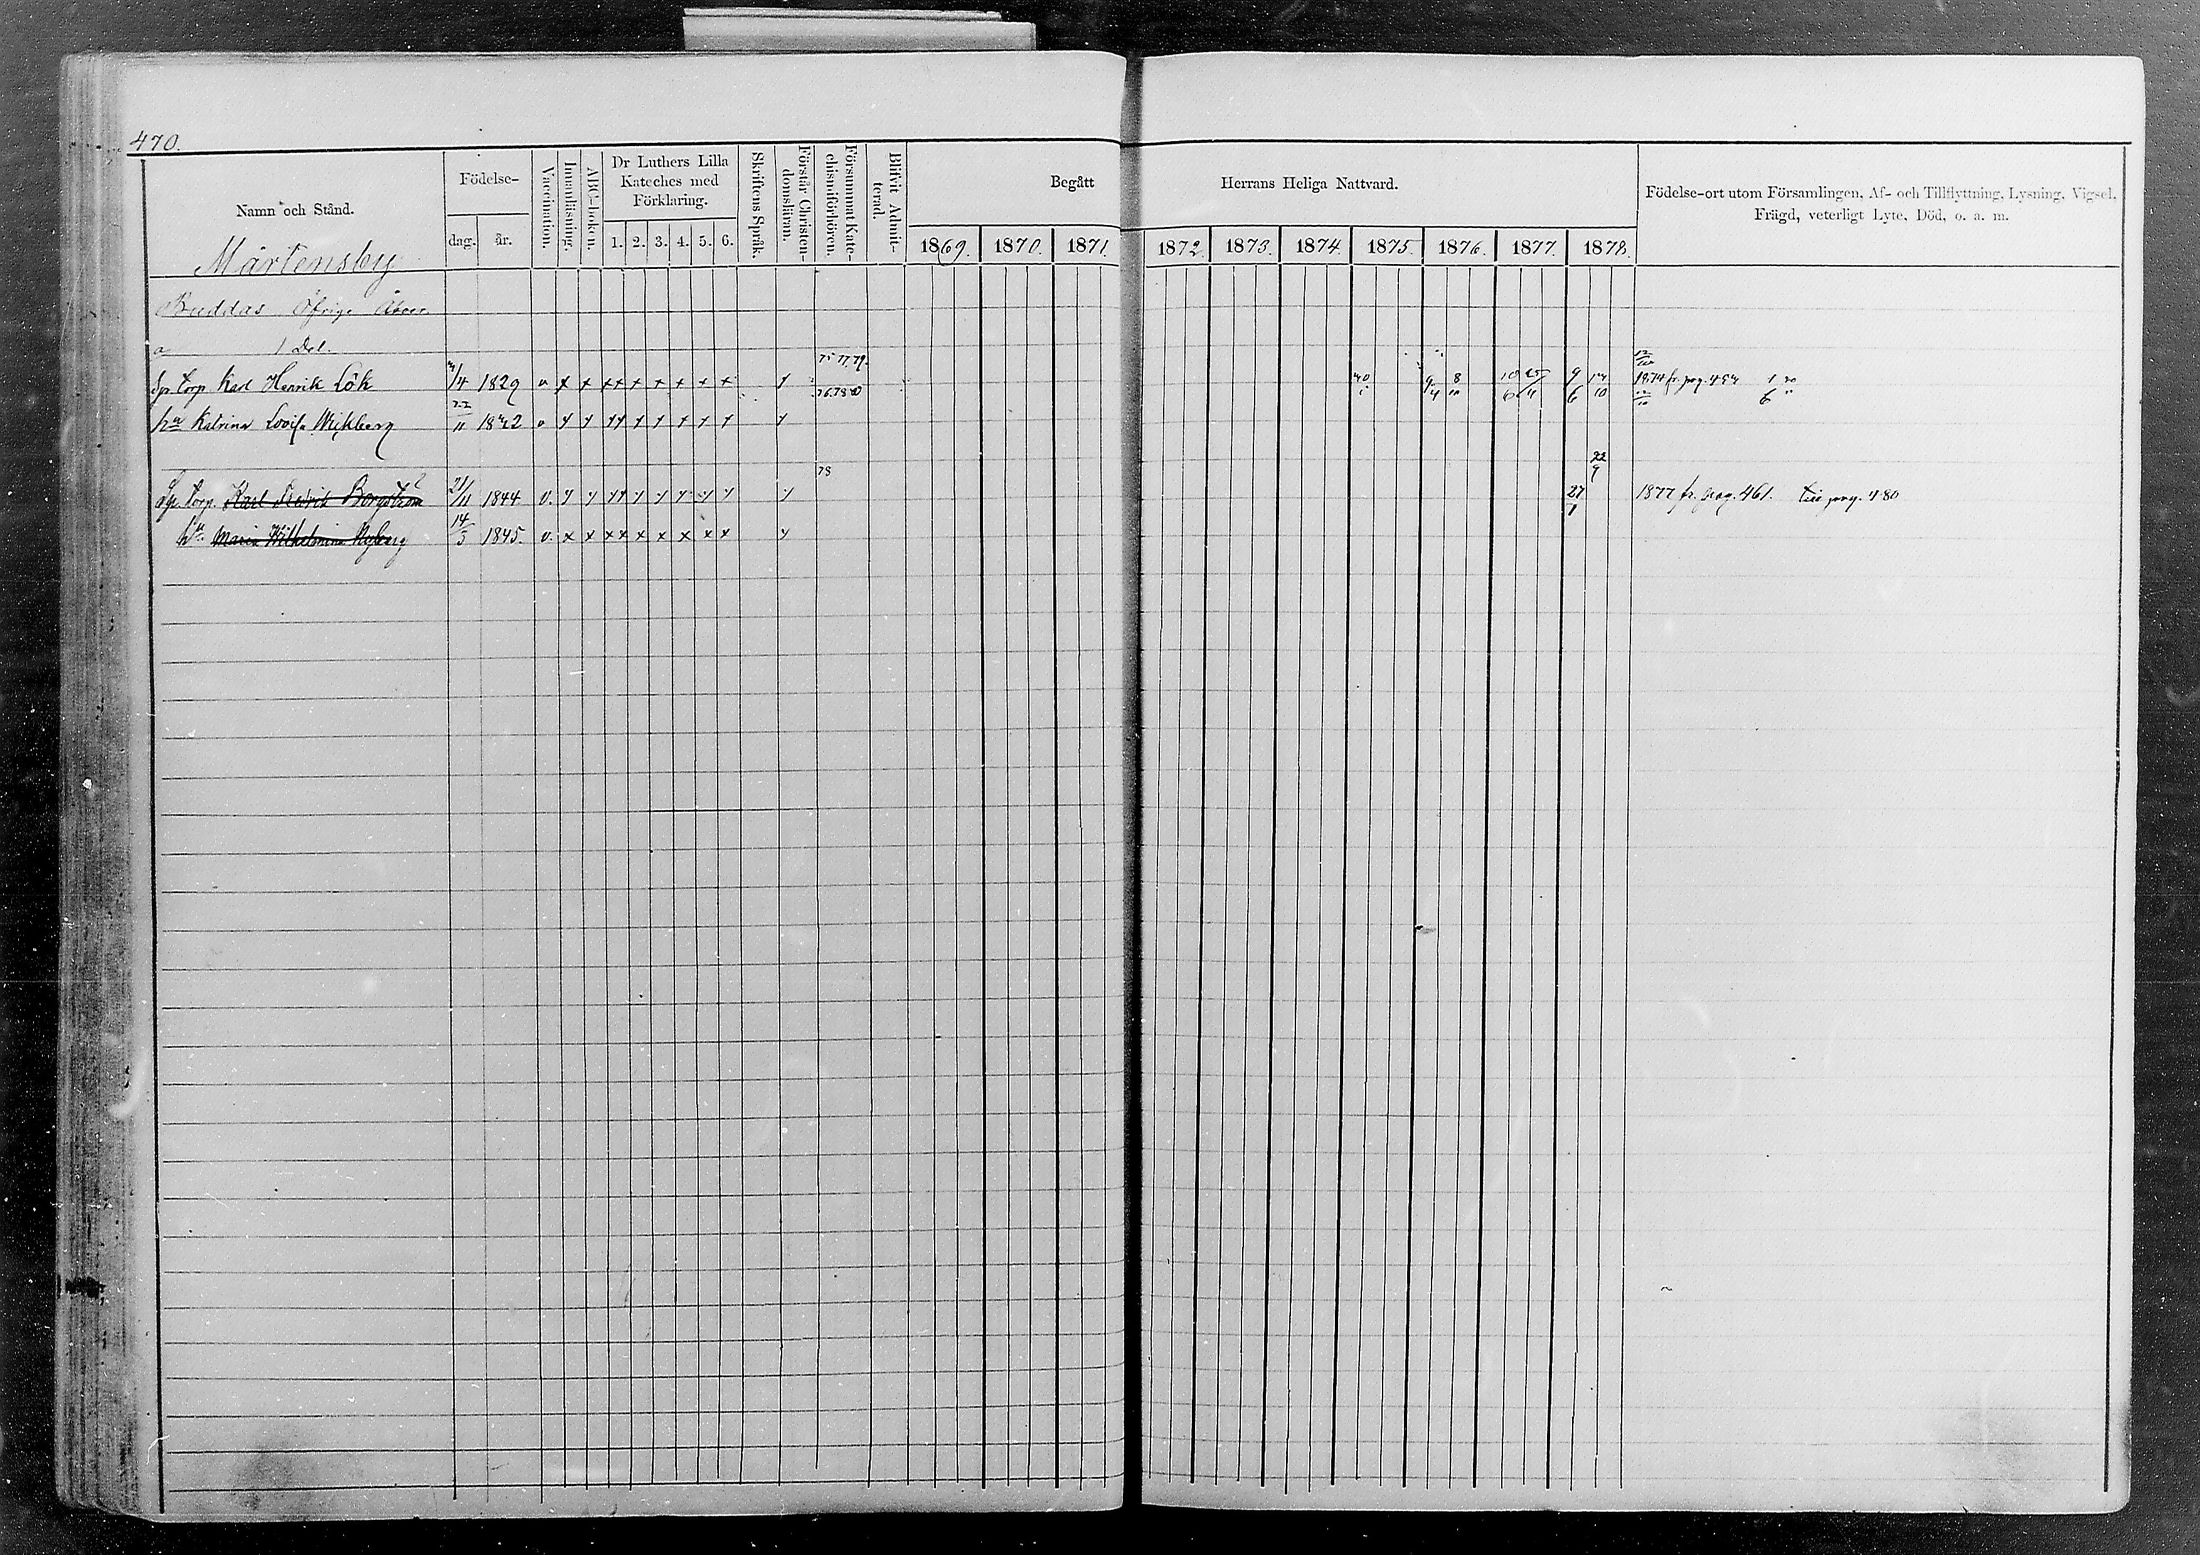 470.
Namn och Stånd.
Födelse-
dag. år.
Vaccination.
Innanläsning.
ABC-boken.
Dr Luthers Lilla
Kateches med
Förklaring.
1. 2. 3. 4. 5. 6.
Skriftens Språk.
Förstår Christen-
domsläran.
Försummat Kate-
chismiförhören.
Blifvit Admit-
terad.
Begått Herrans Heliga Nattvard.
1869. 1870. 1871. 1872. 1873. 1874. 1875. 1876. 1877. 1878.
Födelse-ort utom Församlingen, Af- och Tillflyttning, Lysning, Vigsel,
Frägd, veterligt Lyte, Död, o. a. m.
Mårtensby
Buddas Öfrige Åboer
1 Del.
75 77 79.
torp. Karl Henrik Lök /4 1829 v x x x x x x x x x 76 78 80 9/4 8/10 10/6 25/4 9/6 /10 1874 fr. pag.
hu Katrina Lovisa 22/11 2 v
78 22/9
torp. Karl Fredrik Borgström 21/11 1844 v. 27/7 1877 fr. pag. 461. till pag. 480
hu. Maria Wilhelmina Nyberg 14/3 1845. v. x x x x x x x x x